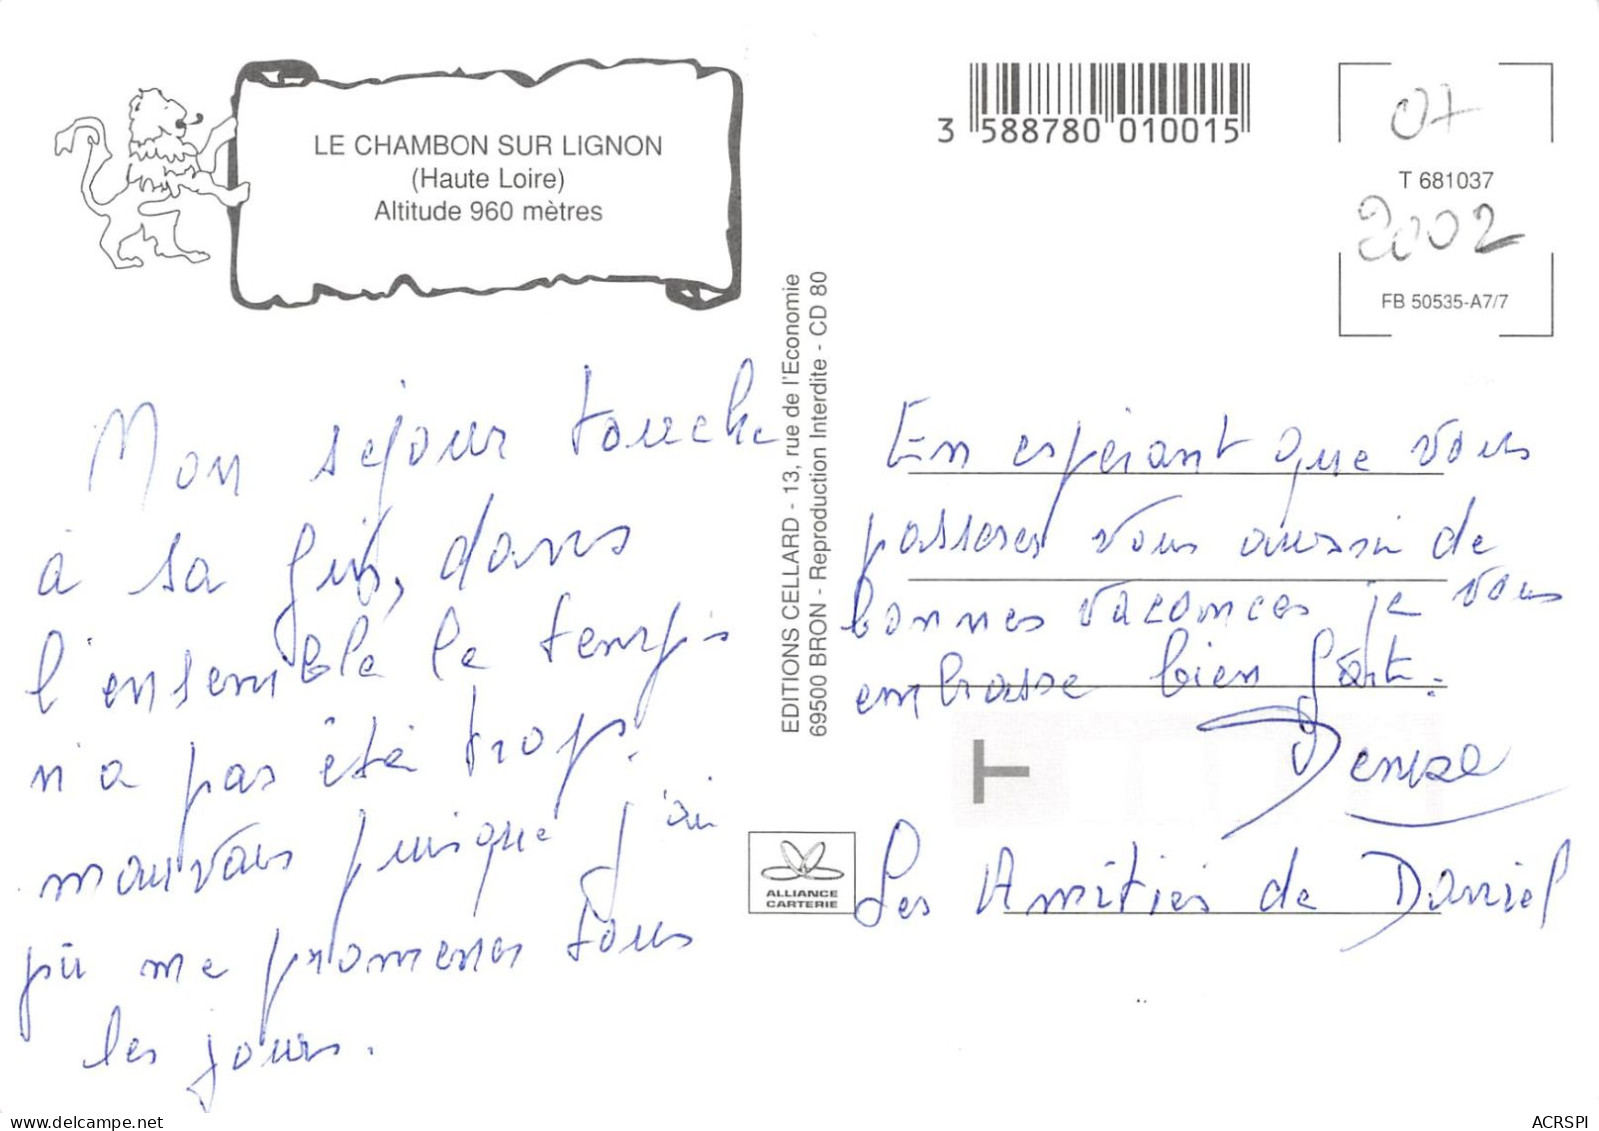 LE CHAMBON SUR LIGNON
(Haute Loire)
Altitude 960 mètres
3 588780 010015
07
T 681037
2002
FB 50535-A7/7
EDITIONS CELLARD - 13, rue de l'Economie
69500 BRON - Reproduction Interdite - CD 80
Mon séjour touche
à sa fin, dans
l'ensemble le temps
n'a pas été trop
mauvais puisque j'ai
pû me promener tous
les jours.
En espérant que vous
passerez vous aussi de
bonnes vacances je vous
embrasse bien fort.
Denise
Les Amitiés de Daniel
ALLIANCE
CARTERIE
ACRSPI